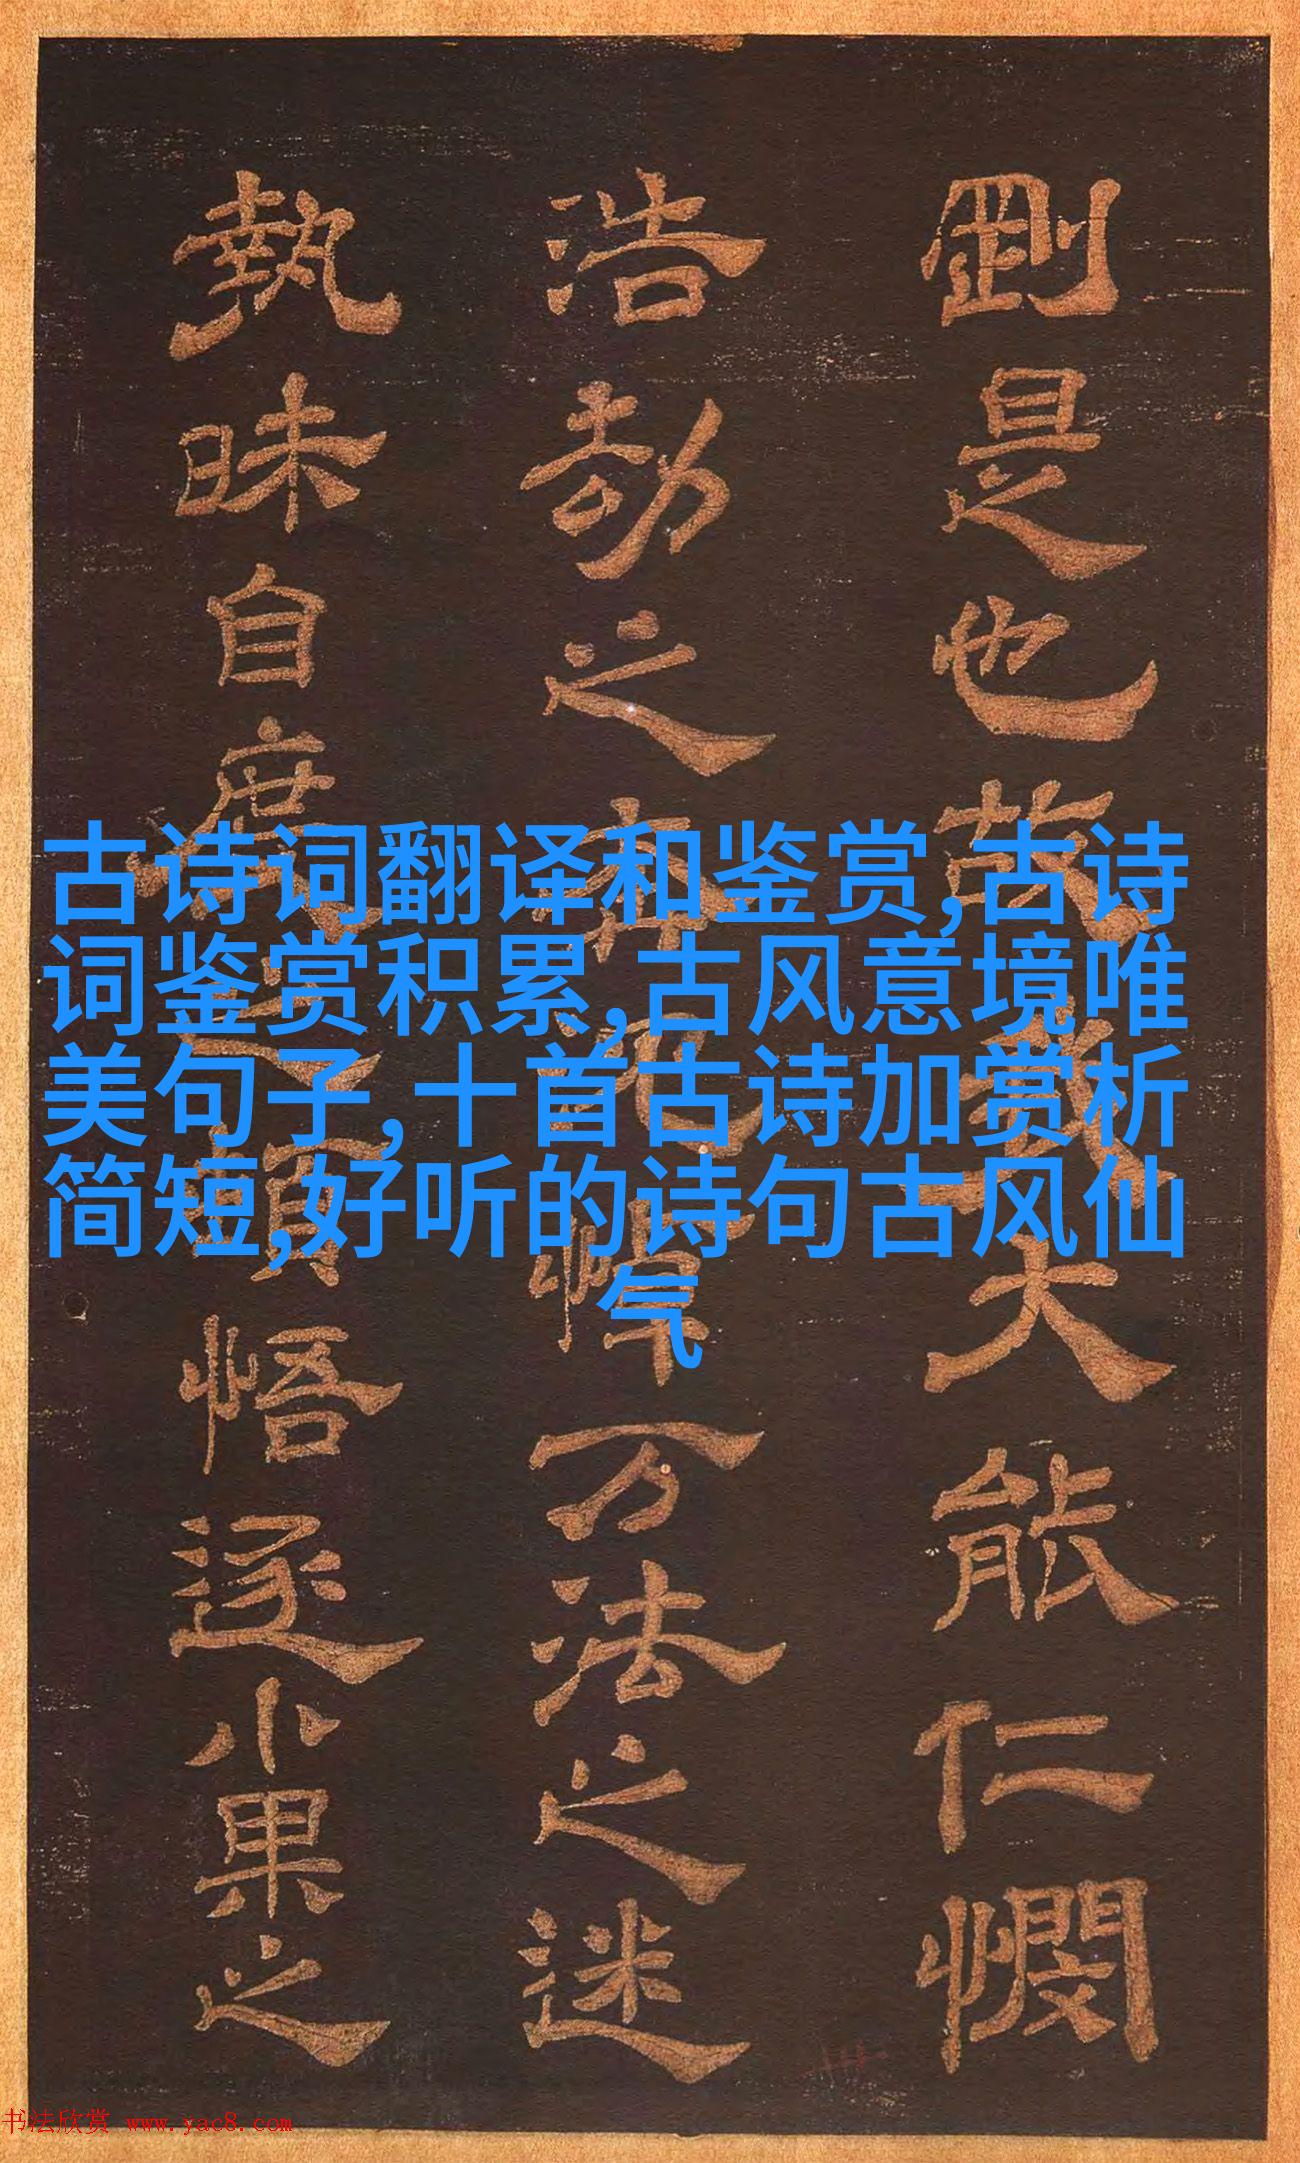 剛是也故我大能仁憫
浩劫之奔沉悼万法之迷
執昧自之頓悟逐小果之
古诗词翻译和鉴赏,古诗
词鉴赏积累,古风意境唯
美句子,十首古诗加赏析
简短,好听的诗句古风仙
气
书法欣赏 www.yac8.com